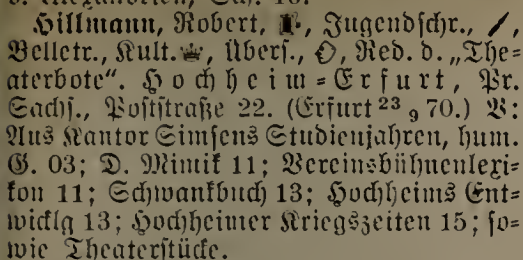 Hillmann, Robert, Jugendschr.,
Belletr., Kult. Übers., Red. d. „The=
aterbote“. Hochheim=Erfurt, Pr.
Sachs., Poststraße 22. (Erfurt 23 9 70.) V:
Aus Kantor Simsens Studienjahren, hum.
G. 03; D. Mimik 11; Vereinsbühnenlexi=
kon 11; Schwankbuch 13; Hochheims Ent=
wicklg 13; Hochheimer Kriegszeiten 15; so=
wie Theaterstücke.